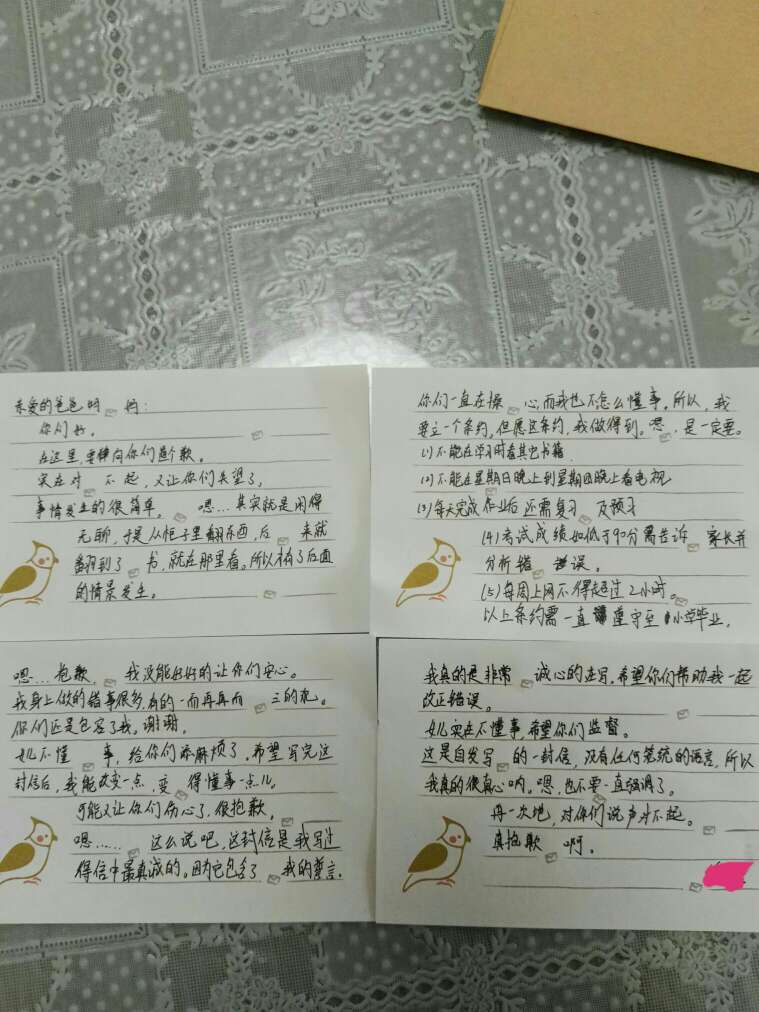 亲爱的爸爸妈妈：
你们好。
在这里，要向你们道个歉。
实在对不起，又让你们失望了，
事情发生的很简单。嗯…其实就是闲得
无聊，于是从柜子里翻东西，后来就
翻到了书，就在那里看。所以才有了后面
的情景发生。
你们一直在操心，而我也不怎么懂事。所以，我
要立一个条约，但愿这条约，我做得到。嗯，是一定要。
(1)不能在学习时看其它书籍
(2)不能在星期日晚上到星期四晚上看电视
(3)每天完成作业后还需复习及预习
(4)考试成绩如低于90分需告诉家长并
分析错误。
(5)每周上网不得超过2小时。
以上条约需一直遵守至小学毕业。
嗯…抱歉，我没能好好的让你们安心。
我身上做的错事很多，有的一而再再而三的犯。
你们还是包容了我。谢谢。
女儿不懂事，给你们添麻烦了，希望写完这
封信后，我能改变一点，变得懂事一点儿。
可能又让你们伤心了，很抱歉。
嗯……这么说吧，这封信是我写过
得信中最真诚的。因为它包含了我的誓言。
我真的是非常诚心的在写，希望你们帮助我一起
改正错误。
女儿实在不懂事，希望你们监督。
这是自发写的一封信，没有任何笼统的语言，所以
我真的很真心呐。嗯，也不要一直强调了。
再一次地，对你们说声对不起。
真抱歉啊。